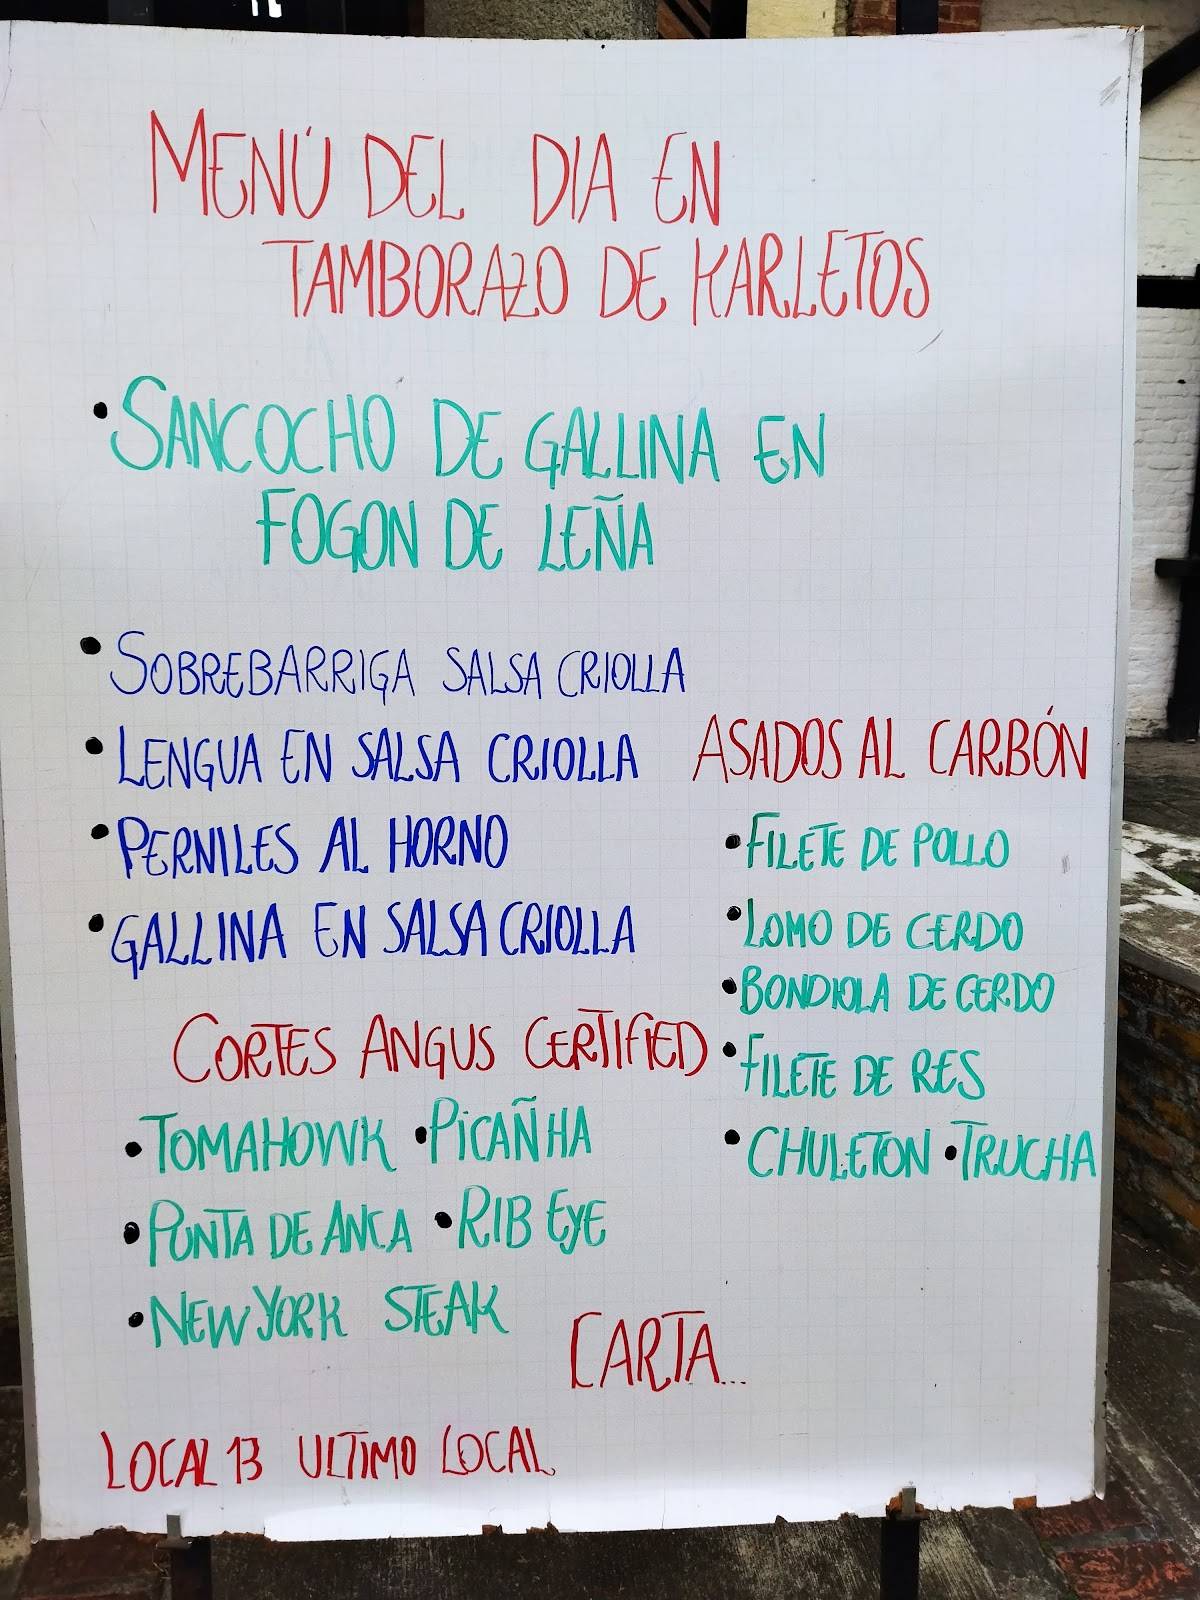 MENÚ DEL DIA EN
TAMBORAZO DE KARLETOS
• SANCOCHO DE GALLINA EN
FOGON DE LEÑA
• SOBREBARRIGA SALSA CRIOLLA
• LENGUA EN SALSA CRIOLLA
• PERNILES AL HORNO
• GALLINA EN SALSA CRIOLLA
ASADOS AL CARBÓN
• FILETE DE POLLO
• LOMO DE CERDO
• BONDIOLA DE CERDO
• FILETE DE RES
• CHULETON • TRUCHA
CORTES ANGUS CERTIFIED
• TOMAHOWK • PICAÑHA
• PUNTA DE ANCA • RIB EYE
• NEW YORK STEAK
CARTA...
LOCAL 13 ULTIMO LOCAL